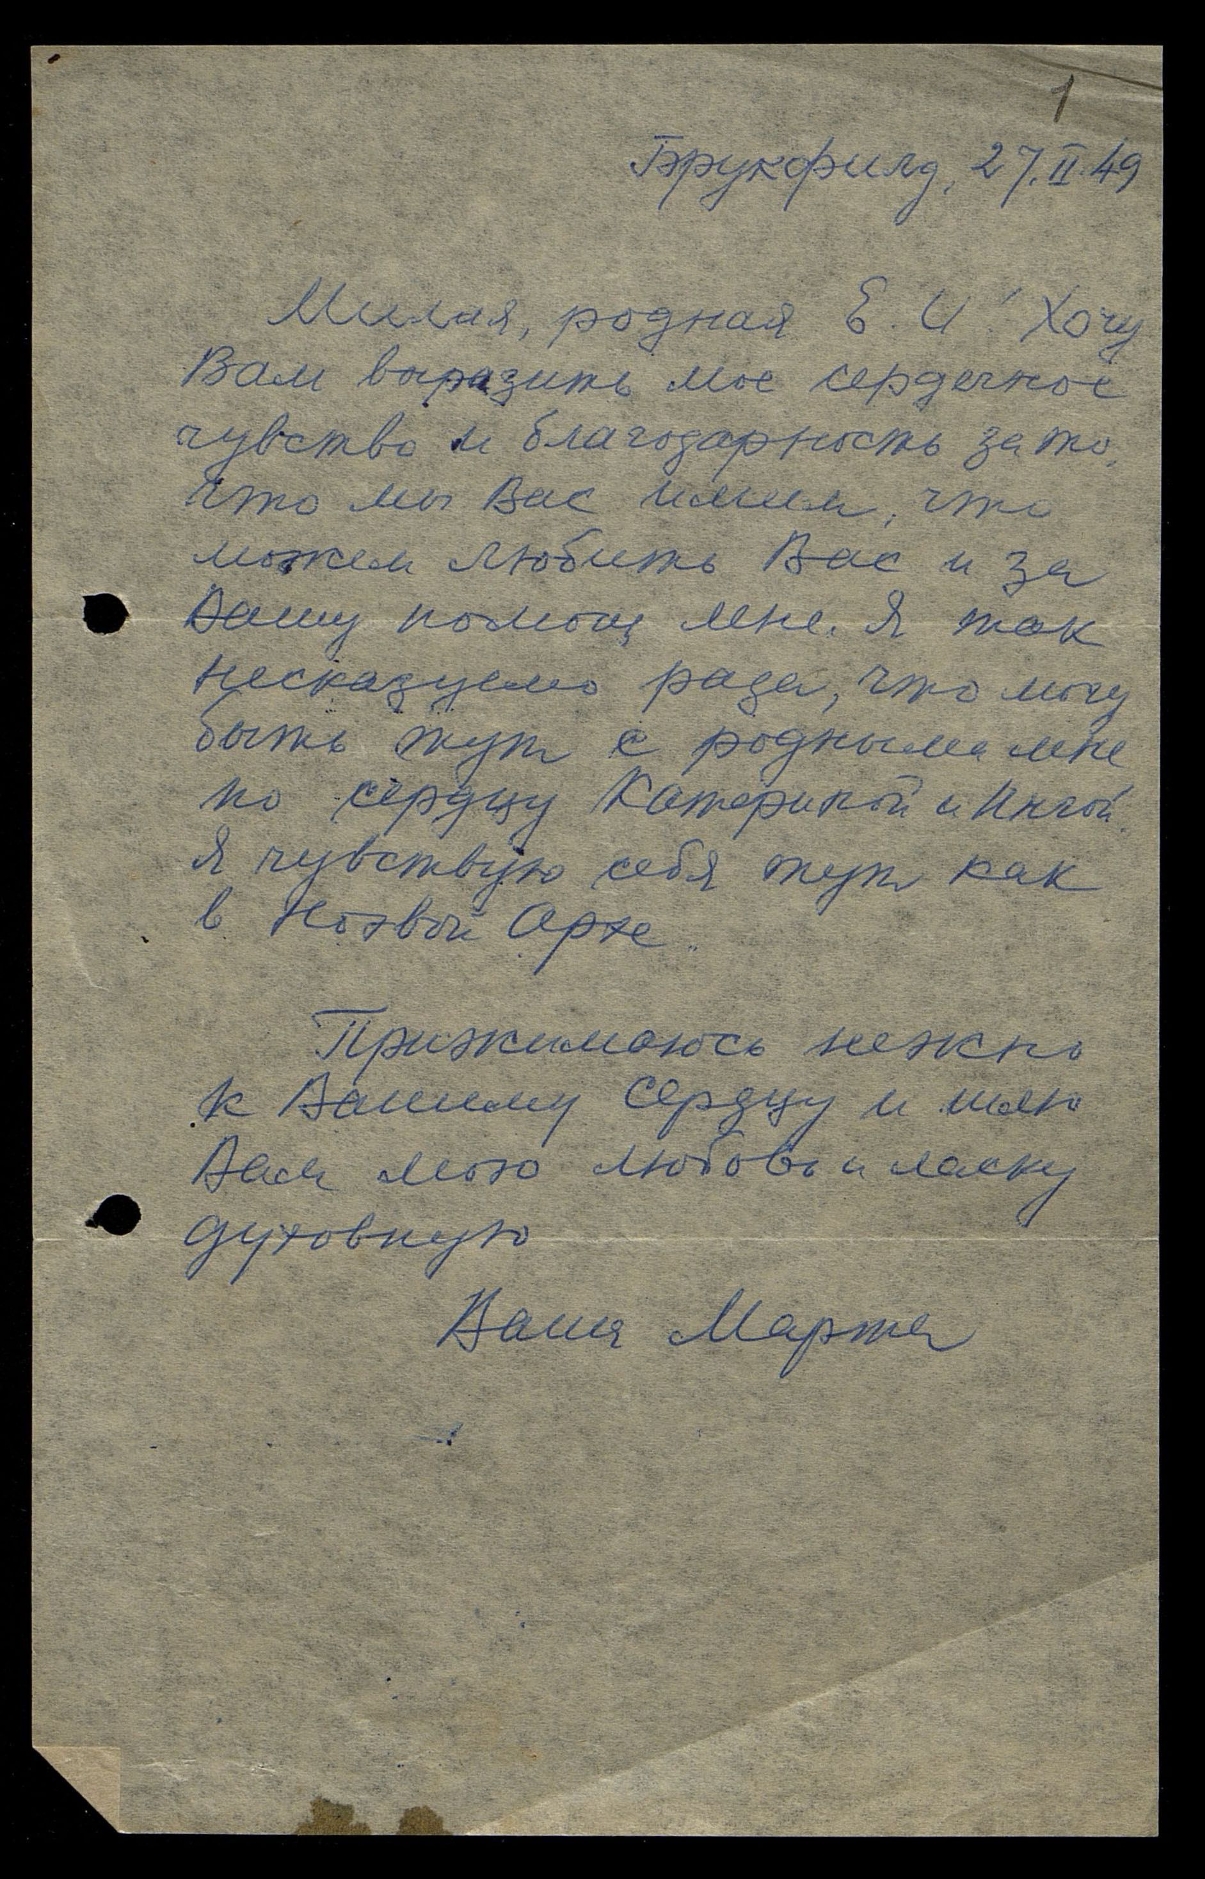 1
Брукфилд, 27.II.49
Милая, родная Е. И! Хочу
Вам выразить мое сердечное
чувство и благодарность за то,
что мы Вас имеем, что
можем любить Вас и за
Вашу помощ мне. Я так
несказуемо рада, что могу
быть тут с родными мне
по сердцу Катериной и Ингой.
Я чувствую себя тут как
в Ноевой Арке.
Прижимаюсь нежно
к Вашему сердцу и шлю
Вам мою любовь и ласку
духовную
Ваша Марта